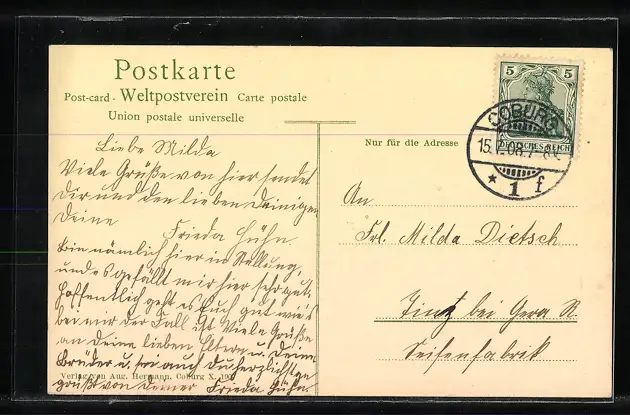 Postkarte
Post-card - Weltpostverein Carte postale
Union postale universelle
Nur für die Adresse
5 5
DEUTSCHES REICH
COBURG
15. .08.7-8V.
* 1 f
Liebe Milda
Viele Grüße von hier sendet
Dir und den lieben Deinigen
Deine Frieda Hühn.
Bin nämlich hier in Stellung,
und es gefällt mir hier sehr gut,
hoffentlich geht es Euch gut wie's
bei mir der Fall ist. Viele Grüße
an Deine lieben Eltern u. Deine
Brüder u. sei auch Du herzlichst
gegrüßt von Deiner Frieda Hühn.
Verlag von Aug. Hermann, Coburg X. 190
An
Frl. Milda Dietsch
Tinz bei Gera R.
Seifenfabrik